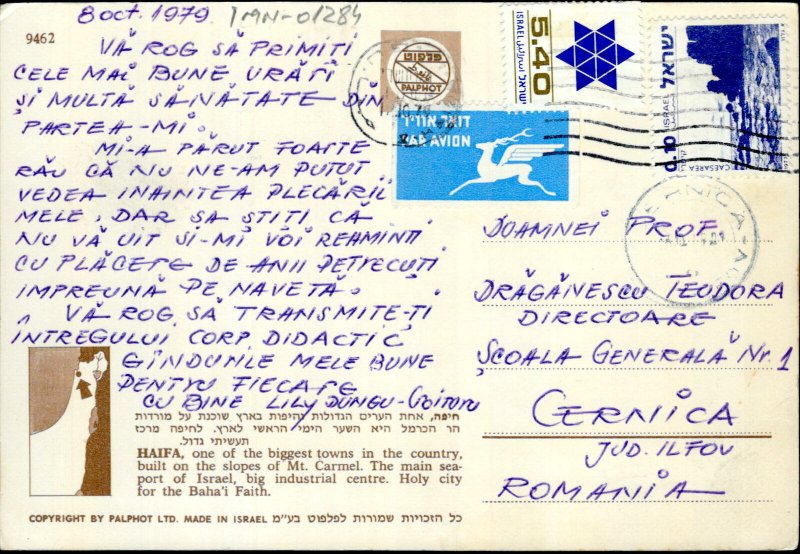 8 oct. 1979
IMN-01284
9462
VĂ ROG SĂ PRIMITI
CELE MAI BUNE URĂTI
ȘI MULTĂ SĂNĂTATE DIN
PARTEA-MI.
MI-A PĂRUT FOARTE
RĂU CĂ NU NE-AM PUTUT
VEDEA INAINTEA PLECĂRII
MELE. DAR SA STITI CĂ
NU VĂ UIT SI-MI VOI REAMINTI
CU PLĂCERE DE ANII PETRECUTI
IMPREUNĂ PE NAVETĂ.
VĂ ROG SĂ TRANSMITE-TI
INTREGULUI CORP DIDACTIC
GÎNDURILE MELE BUNE
PENTRU FIECARE
CU BINE LILY DUNGU-
פלפוט
PALPHOT
ISRAEL
5.40
ישראל
ישראל
ISRAEL
CAESAREA
דואר אויר
PAR AVION
CERNICA
DOAMNEI PROF.
DRĂGĂNESCU TEODORA
DIRECTOARE
ȘCOALA GENERALĂ Nr. 1
CERNICA
JUD. ILFOV
ROMANIA
חיפה, אחת הערים הגדולות והיפות בארץ שוכנת על מורדות
הר הכרמל היא השער הימי הראשי לארץ. לחיפה מרכז
תעשיתי גדול.
HAIFA, one of the biggest towns in the country,
built on the slopes of Mt. Carmel. The main sea-
port of Israel, big industrial centre. Holy city
for the Baha'i Faith.
COPYRIGHT BY PALPHOT LTD. MADE IN ISRAEL כל הזכויות שמורות לפלפוט בע"מ